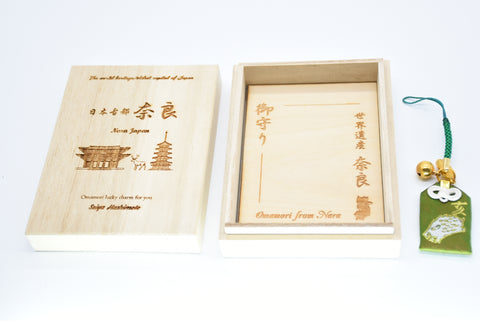 The world heritage, oldest capital of Japan
日本古都 奈良
Nara Japan
Omamori lucky charm for you
Seiya Hashimoto
御守り
世界遺産 奈良
Omamori from Nara